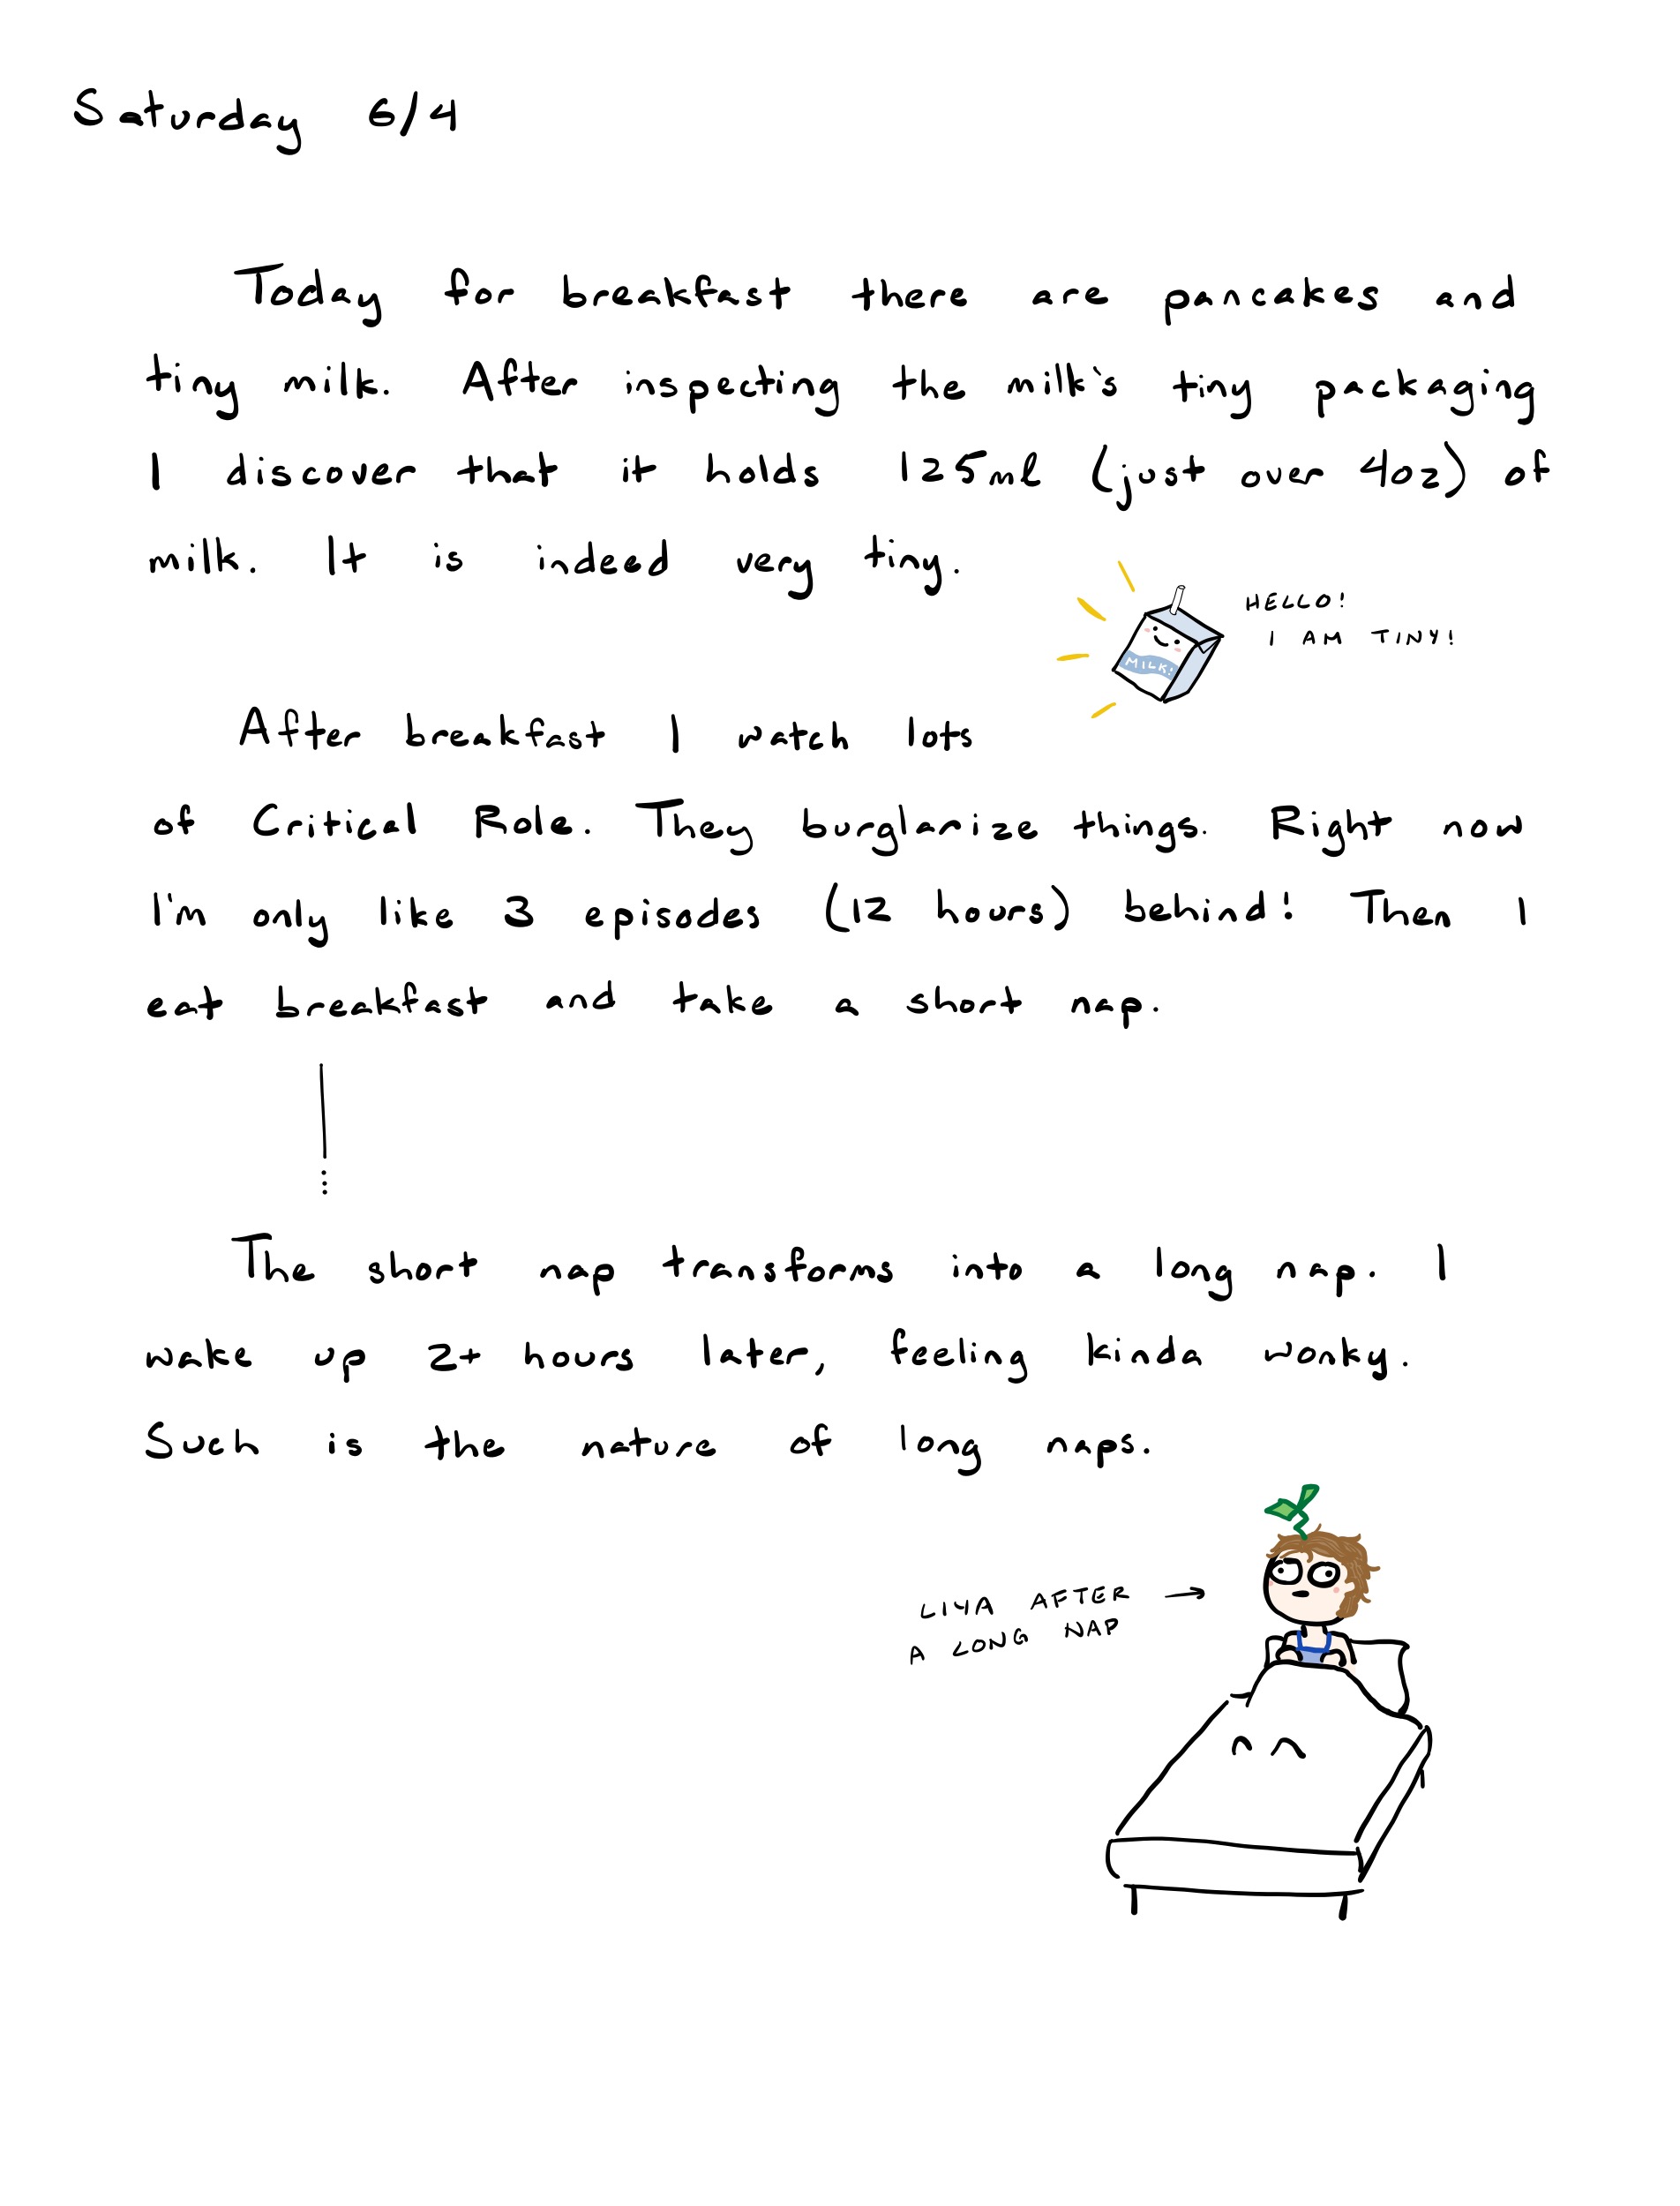 Saturday 6/4
Today for breakfast there are pancakes and
tiny milk. After inspecting the milk's tiny packaging
I discover that it holds 125ml (just over 4oz) of
milk. It is indeed very tiny.
HELLO!
I AM TINY!
MILK!
After breakfast I watch lots
of Critical Role. They burglarize things. Right now
I'm only like 3 episodes (12 hours) behind! Then I
eat breakfast and take a short nap.
The short nap transforms into a long nap. I
wake up 2+ hours later, feeling kinda wonky.
Such is the nature of long naps.
LIYA AFTER →
A LONG NAP